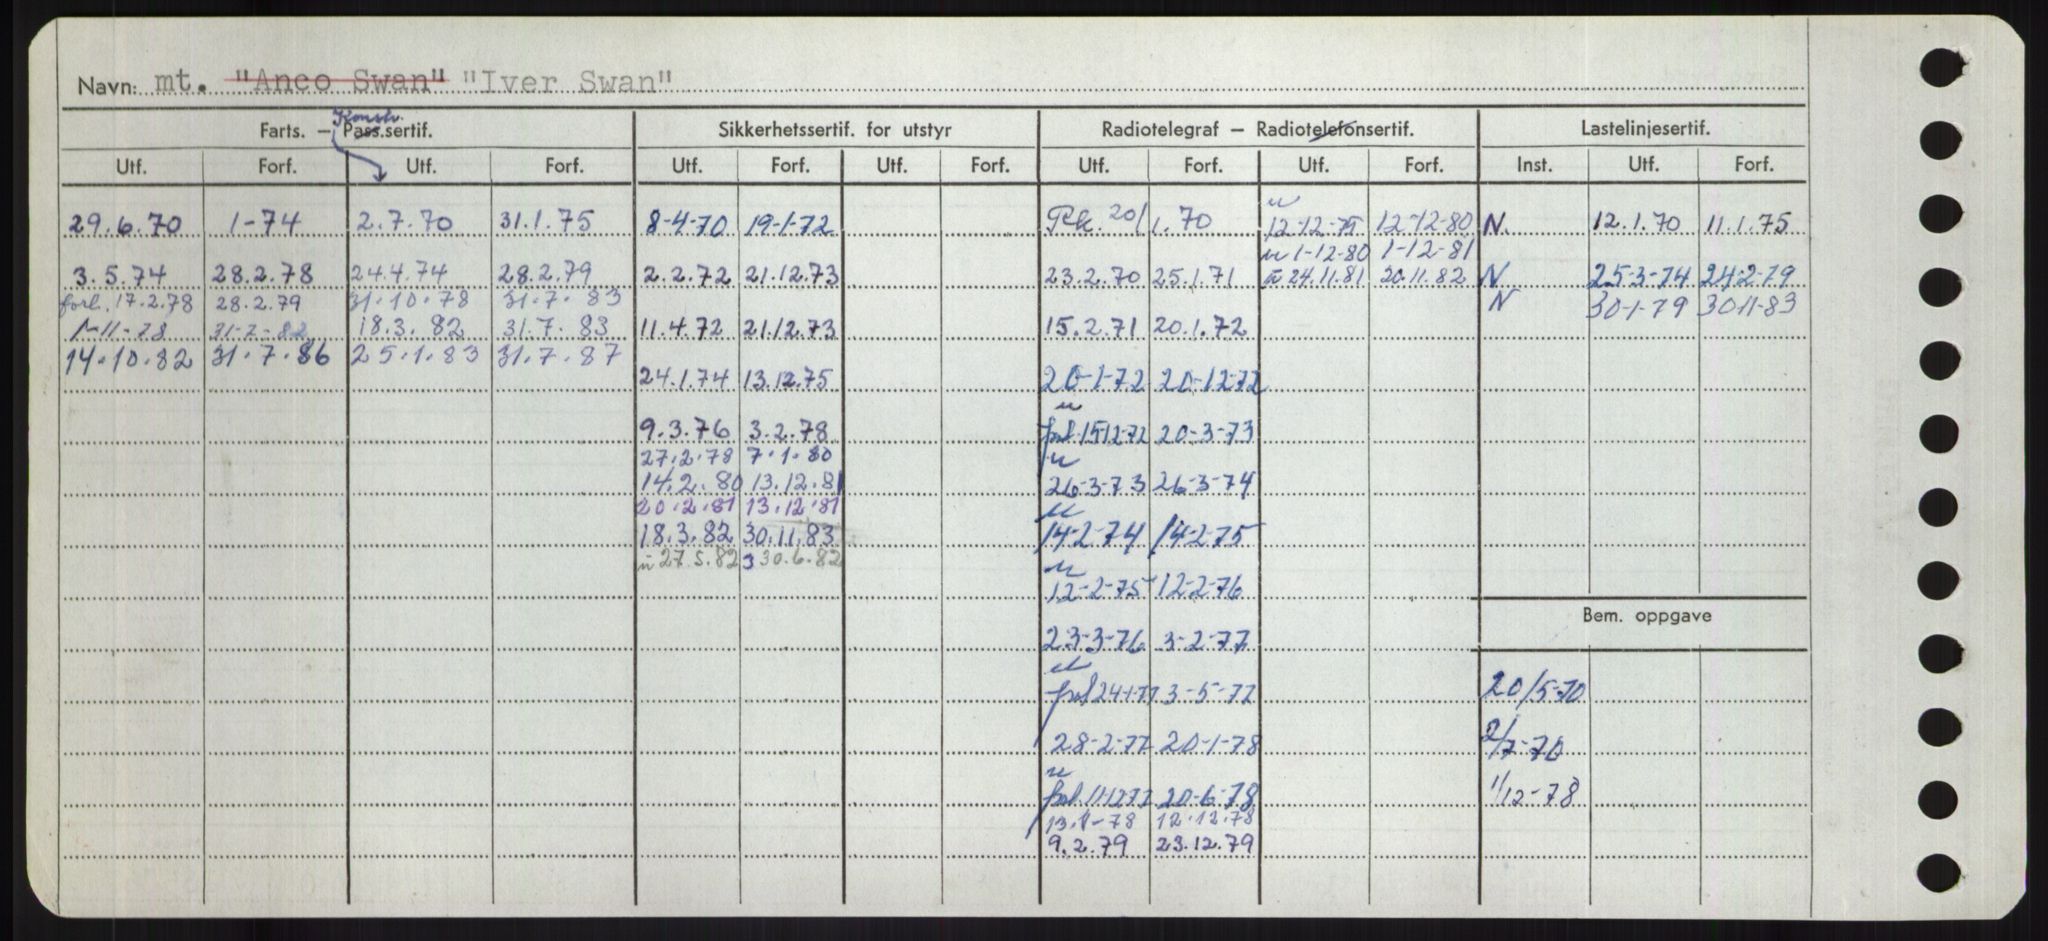 Navn: mt. "Anco Swan" "Iver Swan"
Farts. — Pass.sertif. Konstr. Sikkerhetssertif. for utstyr Radiotelegraf — Radiotelefonsertif. Lastelinjesertif.
Utf. Forf. Utf. Forf. Utf. Forf. Utf. Forf. Utf. Forf. Utf. Forf. Inst. Utf. Forf.
29.6.70 1-74 2.7.70 31.1.75 8-4-70 19-1-72 Rk. 20/1.70 u 12-12-75 12-12-80 N. 12.1.70 11.1.75
u 1-12-80 1-12-81
3.5.74 28.2.78 24.4.74 28.2.79 2.2.72 21.12.73 23.2.70 25.1.71 u 24.11.81 20.11.82 N 25-3-74 24-2-79
forl. 17.2.78 28.2.79 31.10.78 31.7.83 N 30-1-79 30-11-83
1-11-78 31-7-82 18.3.82 31.7.83 11.4.72 21.12.73 15.2.71 20.1.72
14.10.82 31.7.86 25.1.83 31.7.87
24.1.74 13.12.75 20-1-72 20-12-72
u
9.3.76 3.2.78 forl. 15-12-72 20-3-73
27.2.78 7.1.80 u
14.2.80 13.12.81 26-3-73 26-3-74
20.2.81 13.12.81 u
18.3.82 30.11.83 14-2-74 14-2-75
u 27.5.82 3 30.6.82 u
12-2-75 12-2-76
Bem. oppgave
23-3-76 3-2-77
u
forl 24-1-77 3-5-77 20/5-70
28-2-77 20-1-78 2/7-70
u
forl. 11-12-77 20-6-78 1/12-78
13.1-78 12.12.78
9.2.79 23.12.79